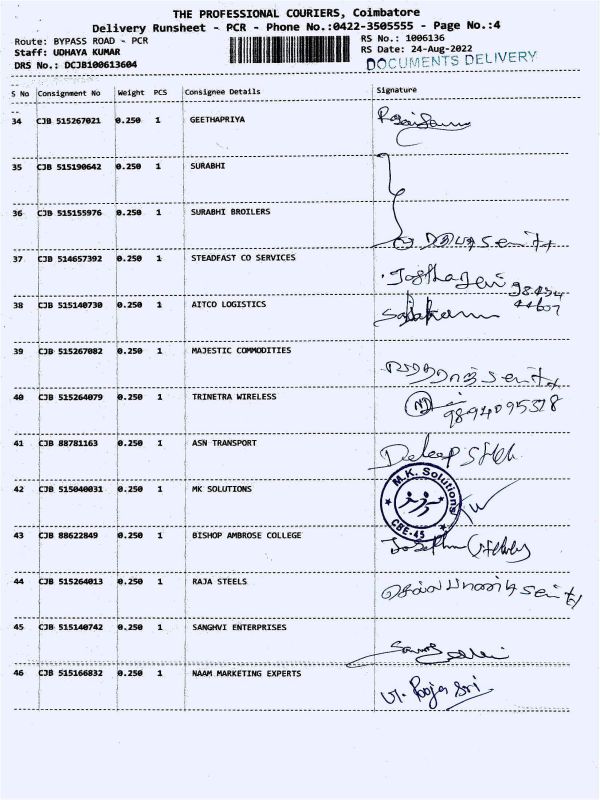 THE PROFESSIONAL COURIERS, Coimbatore
Delivery Runsheet - PCR - Phone No.:0422-3505555 - Page No.:4
Route: BYPASS ROAD - PCR RS No.: 1006136
Staff: UDHAYA KUMAR RS Date: 24-Aug-2022
DRS No.: DCJB100613604 DOCUMENTS DELIVERY
S No Consignment No Weight PCS Consignee Details Signature
34 CJB 515267021 0.250 1 GEETHAPRIYA
35 CJB 515190642 0.250 1 SURABHI
36 CJB 515155976 0.250 1 SURABHI BROILERS
37 CJB 514657392 0.250 1 STEADFAST CO SERVICES
38 CJB 515140730 0.250 1 AITCO LOGISTICS
39 CJB 515267082 0.250 1 MAJESTIC COMMODITIES
40 CJB 515264079 0.250 1 TRINETRA WIRELESS
41 CJB 88781163 0.250 1 ASN TRANSPORT
42 CJB 515040031 0.250 1 MK SOLUTIONS M.K. Solutions CBE-45
43 CJB 88622849 0.250 1 BISHOP AMBROSE COLLEGE
44 CJB 515264013 0.250 1 RAJA STEELS
45 CJB 515140742 0.250 1 SANGHVI ENTERPRISES
46 CJB 515166832 0.250 1 NAAM MARKETING EXPERTS